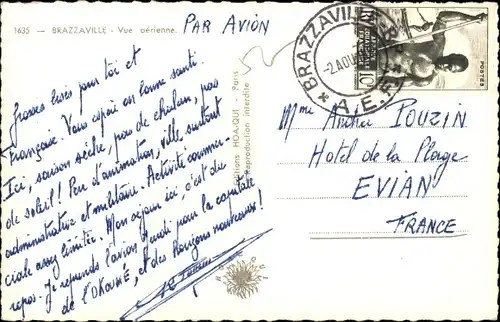 1635 — BRAZZAVILLE - Vue aérienne.
PAR AVION
Grosses bises pour toi et
Française. Vous copie en bonne santé.
Ici, saison sèche, peu de chaleur, pas
de soleil! Peu d'animation, ville surtout
administrative et militaire. Activité commer-
ciale assez limitée. Mon séjour ici, c'est du
repos. Je reprends l'avion Mardi pour la capitale
de l'OKOUMÉ, et des horizons nouveaux!
Editions HOA-QUI - Paris
Reproduction interdite
BRAZZAVILLE
-2 AOU
A.E.F.
AFRIQUE
EQUATORIALE
FRANÇAISE
10F
POSTES
Mme André POUZIN
Hotel de la Plage
EVIAN
FRANCE